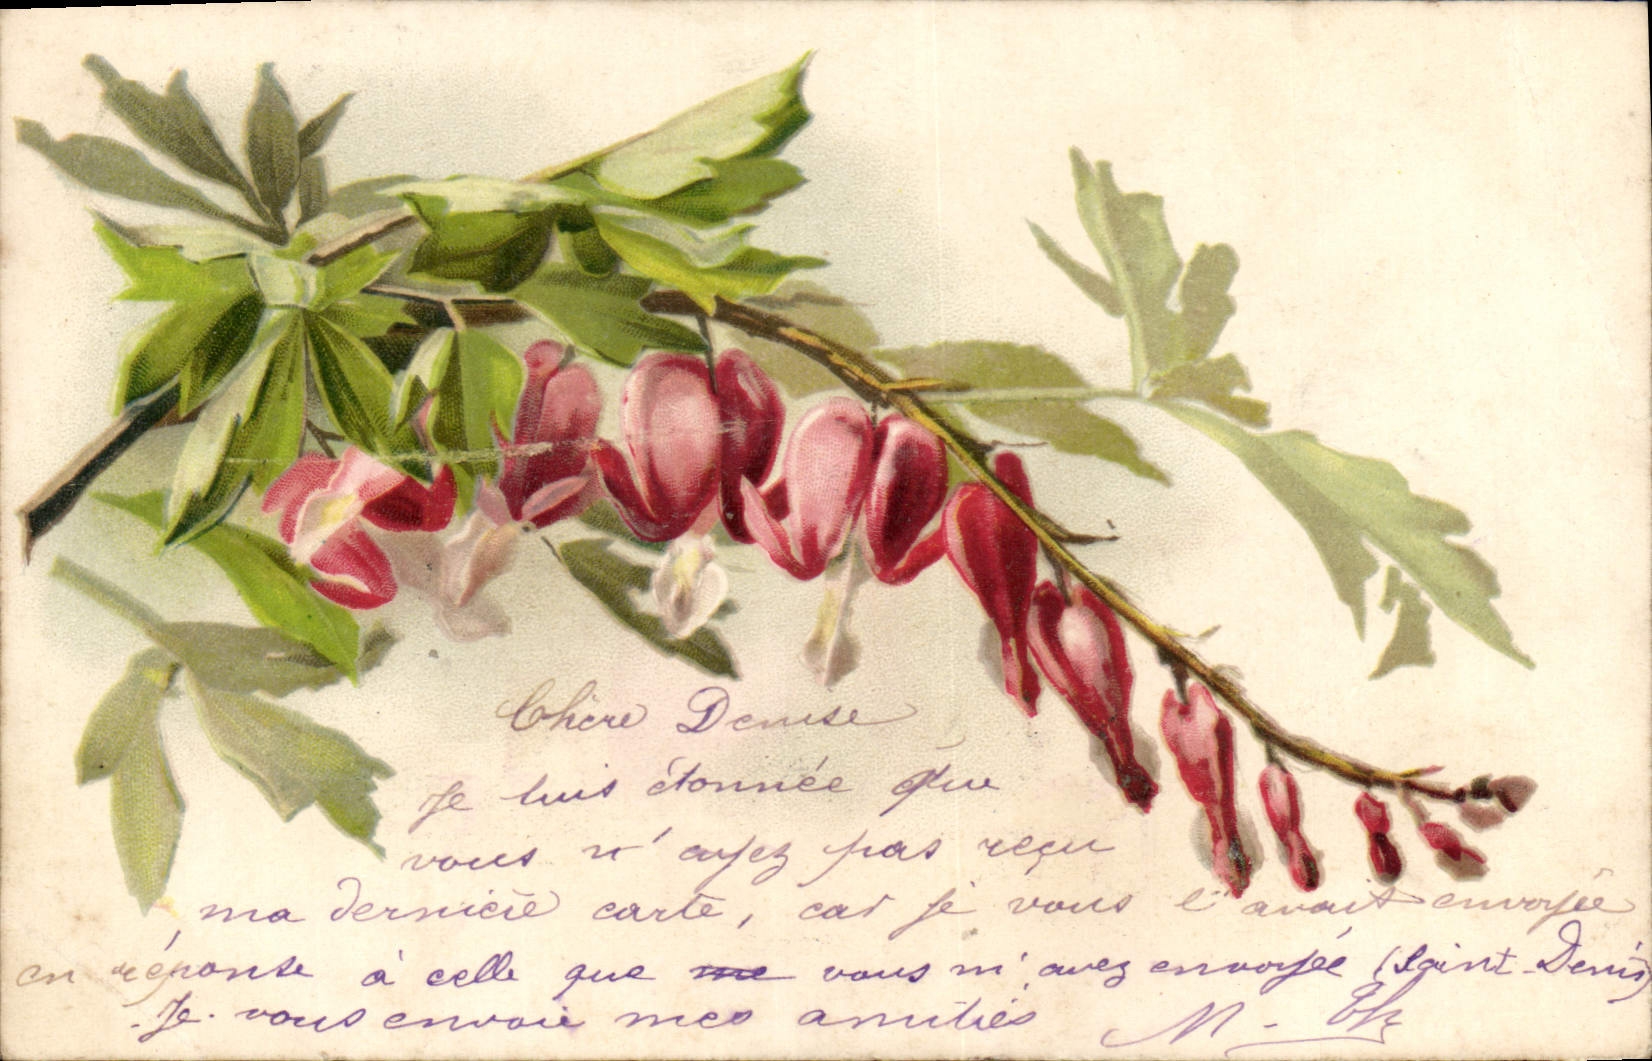 Chère Denise
Je suis étonnée que
vous n'ayez pas reçu
ma dernière carte, car je vous l'avait envoyée
en réponse à celle que me vous m'avez envoyée (Saint-Denis)
Je vous envoie mes amitiés M -